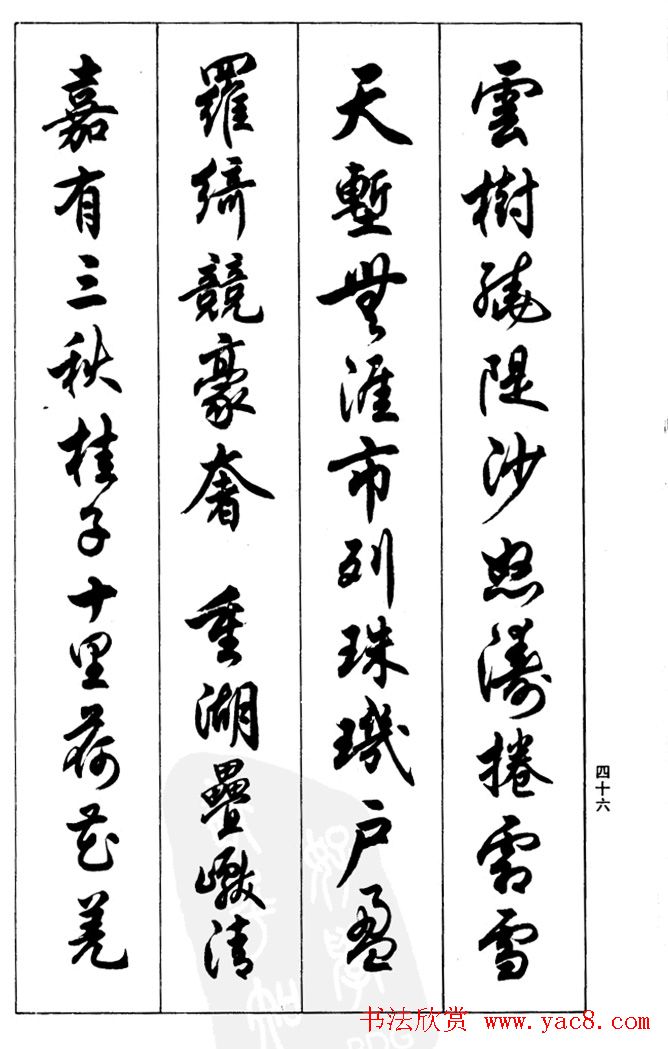 雲樹繞隄沙怒濤捲霜雪
天塹無涯市列珠璣戶盈
羅綺競豪奢 重湖疊巘清
嘉有三秋桂子十里荷花羌
四十六
书法欣赏 www.yac8.com